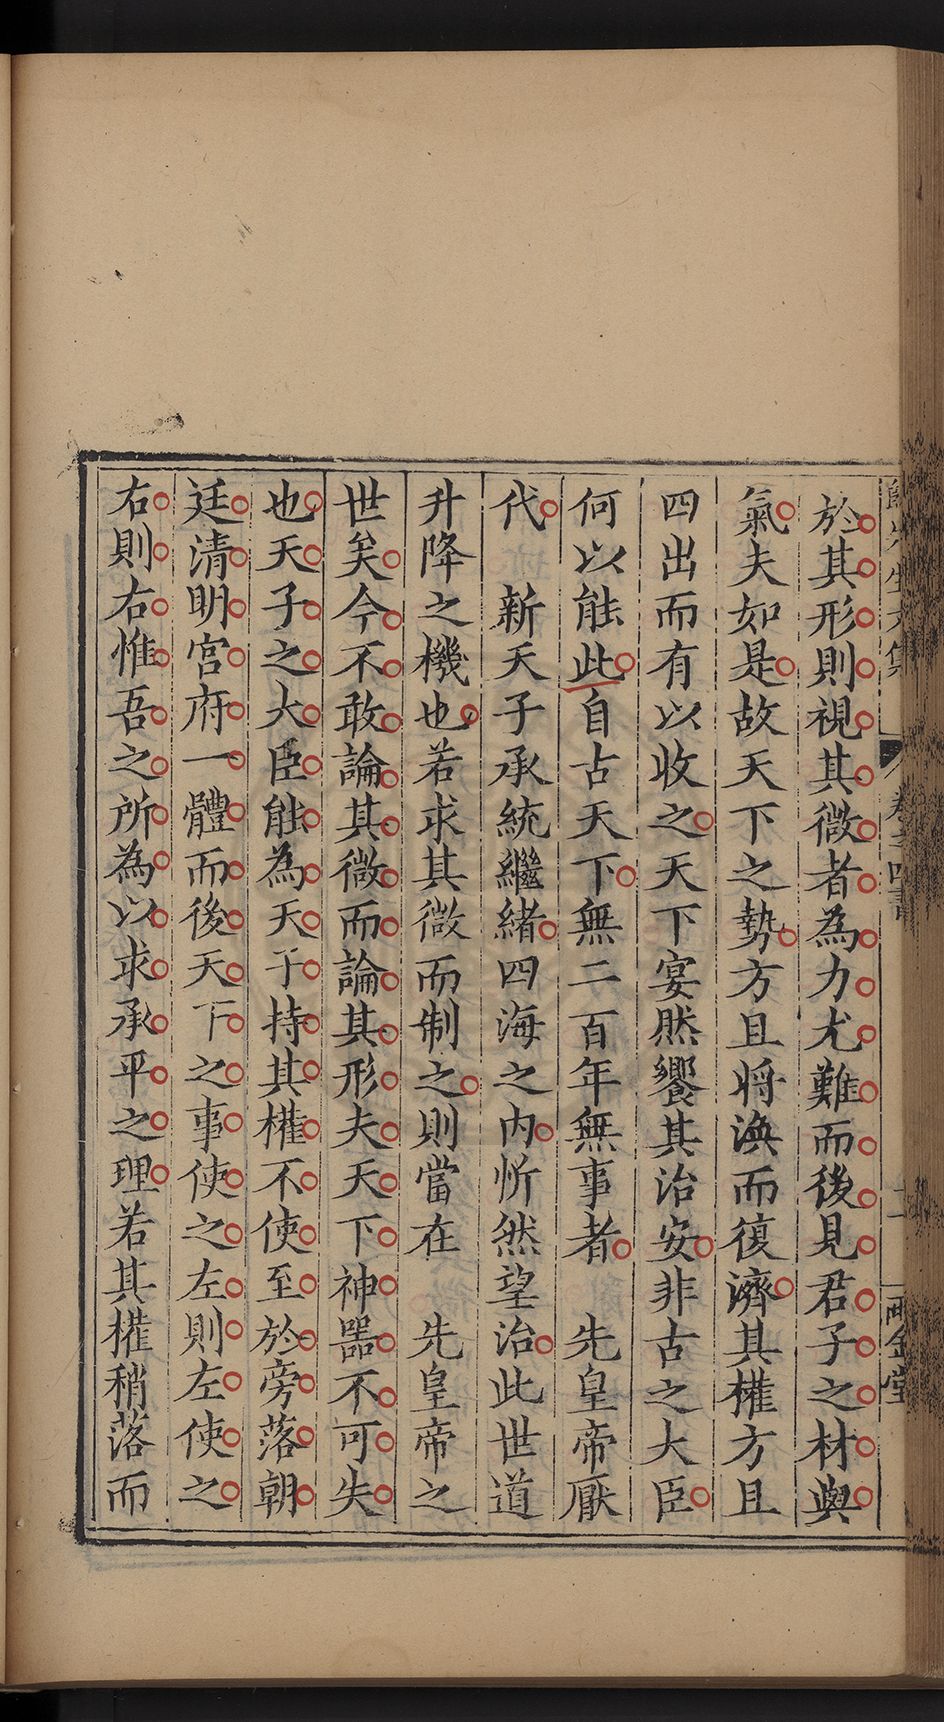 於其形則視其微者為力尤難而後見君子之材與
氣夫如是故天下之勢方且將渙而復濟其權方且
四出而有以收之天下宴然饗其治安非古之大臣
何以能此自古天下無二百年無事者　先皇帝厭
代　新天子承統繼緒四海之內忻然望治此世道
升降之機也若求其微而制之則當在　先皇帝之
世矣今不敢論其微而論其形夫天下神噐不可失
也天子之大臣能為天子持其權不使至於旁落朝
廷清明宮府一體而後天下之事使之左則左使之
右則右惟吾之所為以求承平之理若其權稍落而